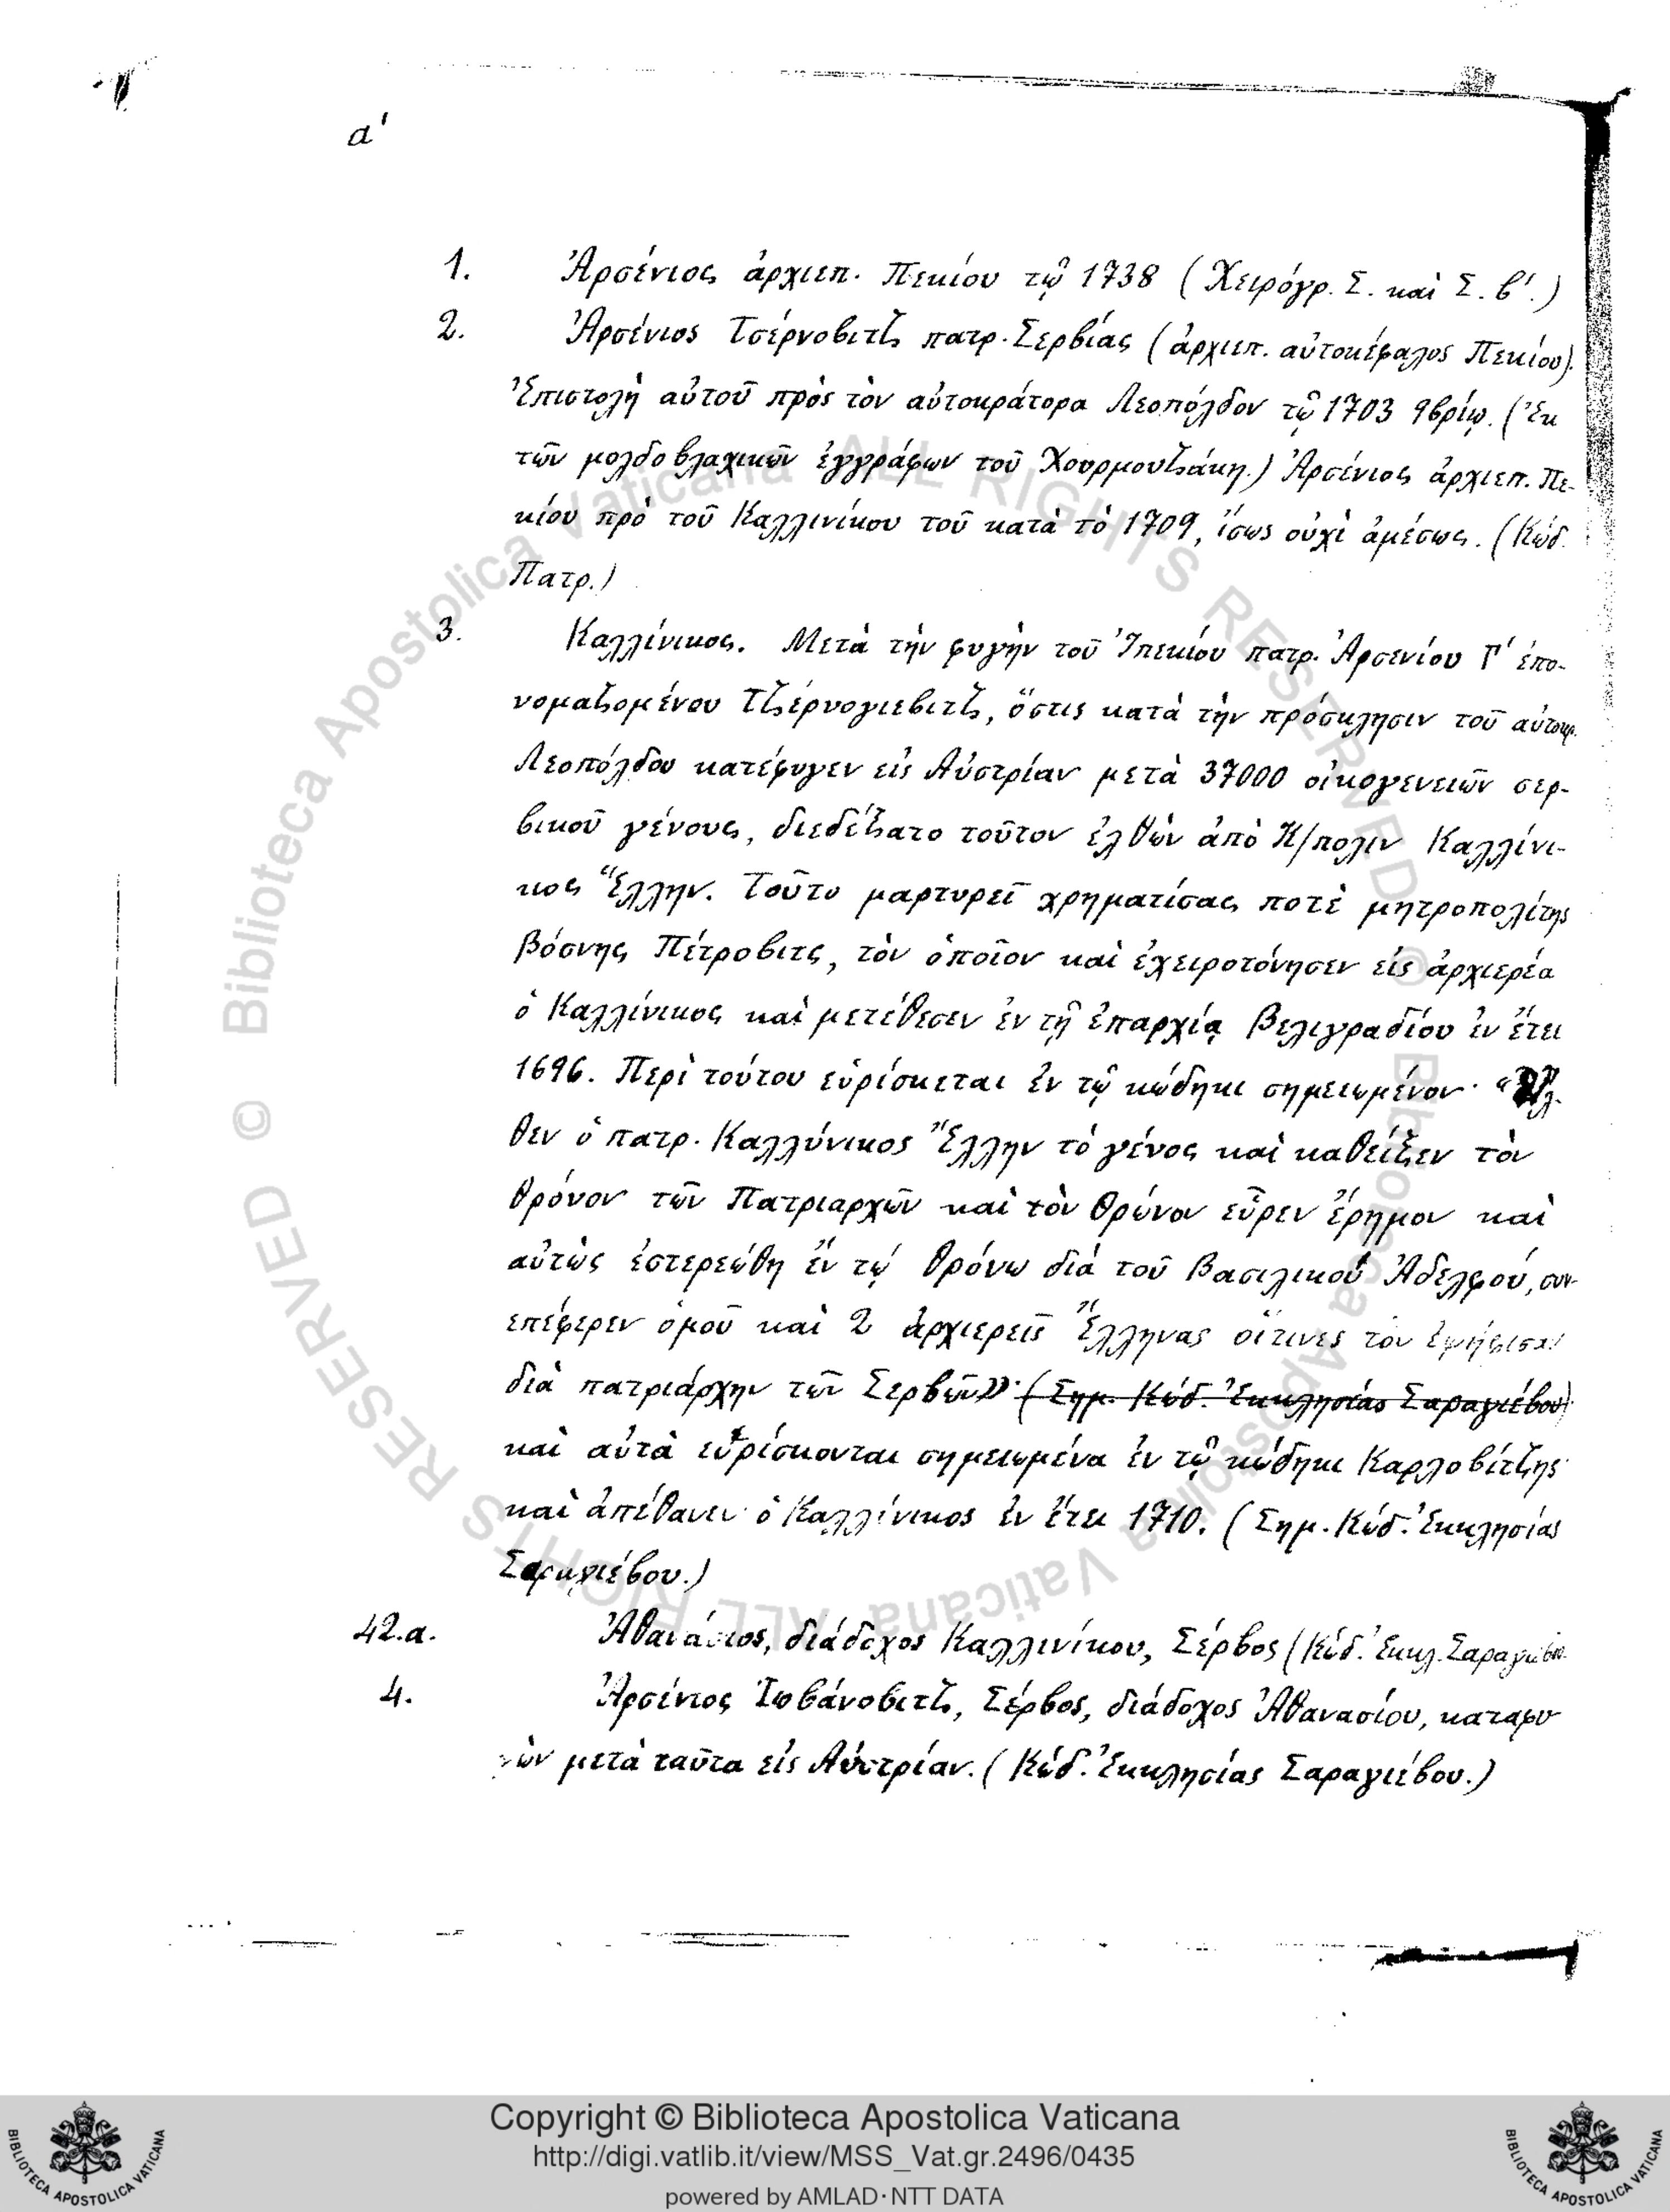 α'
1. Ἀρσένιος ἀρχιεπ. Πεκίου τῷ 1738 (Χειρόγρ. Σ. καὶ Σ. β'.)
2. Ἀρσένιος Τσέρνοβιτζ πατρ. Σερβίας (ἀρχιεπ. αὐτοκέφαλος Πεκίου).
Ἐπιστολὴ αὐτοῦ πρὸς τὸν αὐτοκράτορα Λεοπόλδον τῷ 1703 9βρίῳ. (Ἐκ
τῶν μολδοβλαχικῶν ἐγγράφων τοῦ Χουρμουζάκη.) Ἀρσένιος ἀρχιεπ. Πε-
κίου πρὸ τοῦ Καλλινίκου τοῦ κατὰ τὸ 1709, ἴσως οὐχὶ ἀμέσως. (Κώδ.
Πατρ.)
3. Καλλίνικος. Μετὰ τὴν φυγὴν τοῦ Ἰπεκίου πατρ. Ἀρσενίου Γ' ἐπο-
νομαζομένου Τζέρνογιεβιτζ, ὅστις κατὰ τὴν πρόσκλησιν τοῦ αὐτοκρ.
Λεοπόλδου κατέφυγεν εἰς Αὐστρίαν μετὰ 37000 οἰκογενειῶν σερ-
βικοῦ γένους, διεδέξατο τοῦτον ἐλθὼν ἀπὸ Κ/πολιν Καλλίνι-
κος Ἕλλην. Τοῦτο μαρτυρεῖ χρηματίσας ποτὲ μητροπολίτης
Βόσνης Πέτροβιτς, τὸν ὁποῖον καὶ ἐχειροτόνησεν εἰς ἀρχιερέα
ὁ Καλλίνικος καὶ μετέθεσεν ἐν τῇ ἐπαρχίᾳ Βελιγραδίου ἐν ἔτει
1696. Περὶ τούτου εὑρίσκεται ἐν τῷ κώδηκι σημειωμένον· «Ἦλ-
θεν ὁ πατρ. Καλλύνικος Ἕλλην τὸ γένος καὶ καθεῖξεν τὸν
θρόνον τῶν Πατριαρχῶν καὶ τὸν θρόνον εὗρεν ἔρημον καὶ
αὐτὼς ἐστερεώθη ἔν τῴ θρόνω διά τοῦ Βασιλικοῦ Ἀδελφού, συν-
επέφερεν ὁμοῦ καὶ 2 ἀρχιερεῖς Ἕλληνας οἵτινες τὸν ἐψήφισαν
διὰ πατριάρχην τῶν Σερβῶν»· (Σημ. Κώδ. Ἐκκλησίας Σαραγιέβου)·
καὶ αὐτὰ εὑρίσκονται σημειωμένα ἐν τῷ κώδηκι Καρλοβίτζης·
καὶ ἀπέθανεν ὁ Καλλίνικος ἐν ἔτει 1710. (Σημ. Κώδ. Ἐκκλησίας
Σαραγιέβου.)
42.α. Ἀθανάσιος, διάδοχος Καλλινίκου, Σέρβος (Κώδ. Ἐκκλ. Σαραγιέβου.
4. Ἀρσένιος Ἰωβάνοβιτζ, Σέρβος, διάδοχος Ἀθανασίου, καταφυ
γὼν μετὰ ταῦτα εἰς Αὐστρίαν. (Κώδ. Ἐκκλησίας Σαραγιέβου.)
© Biblioteca Apostolica Vaticana ALL RIGHTS RESERVED © Biblioteca Apostolica Vaticana ALL RIGHTS RESERVED
Copyright © Biblioteca Apostolica Vaticana
http://digi.vatlib.it/view/MSS_Vat.gr.2496/0435
powered by AMLAD·NTT DATA
BIBLIOTECA APOSTOLICA VATICANA
BIBLIOTECA APOSTOLICA VATICANA